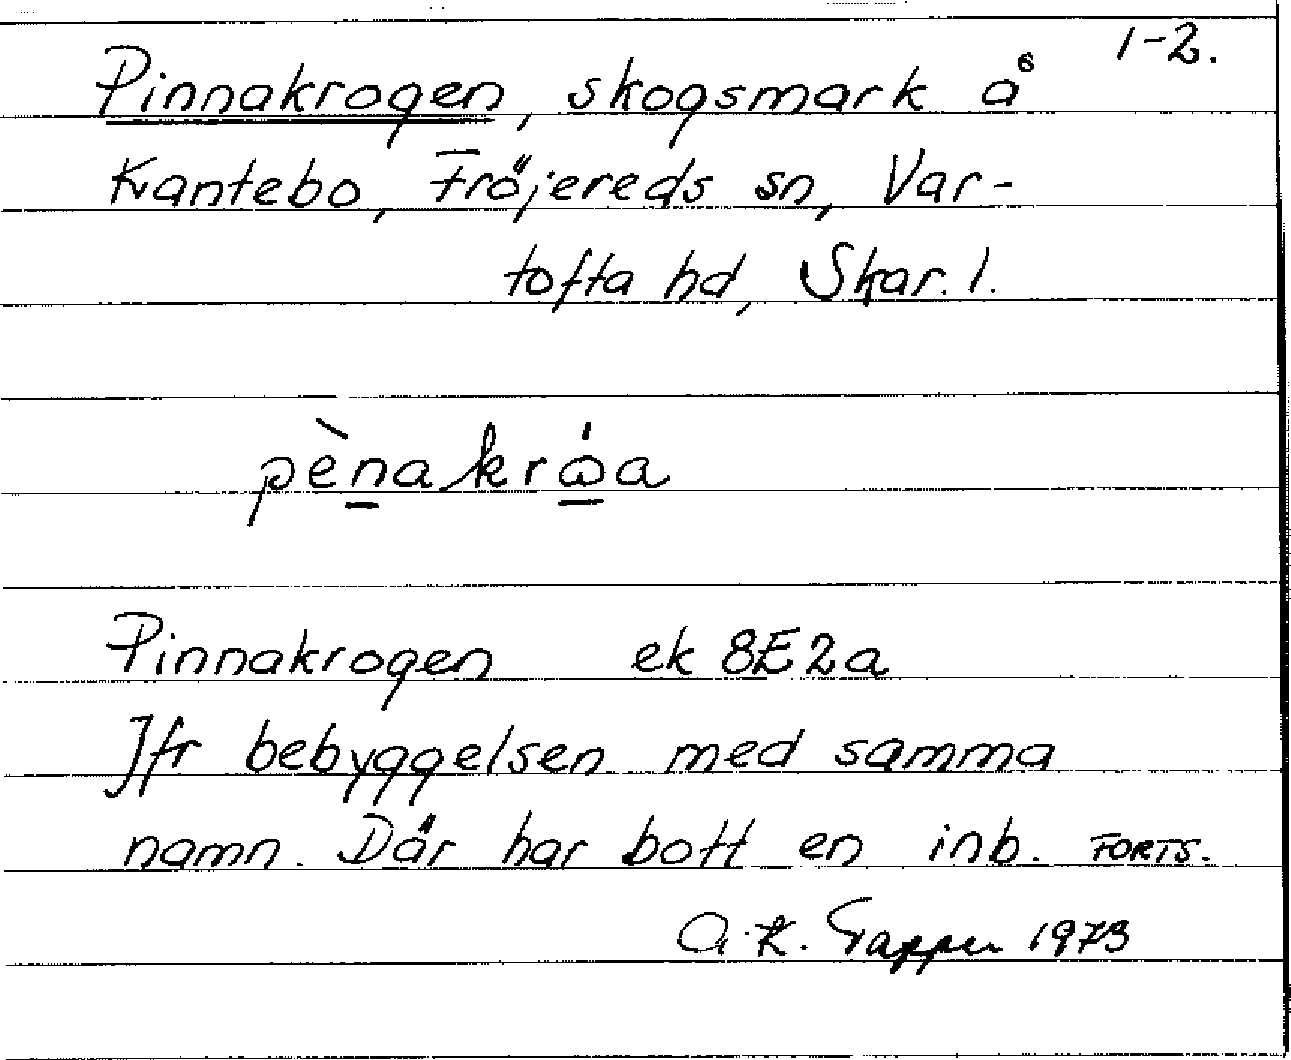 1-2.
Pinnakrogen, skogsmark å
Kantebo, Fröjereds sn, Var-
tofta hd, Skar. l.
pènakrώa
Pinnakrogen ek 8E2a
Jfr bebyggelsen med samma
namn. Där har bott en inb. FORTS.
A.K. Tapper 1973